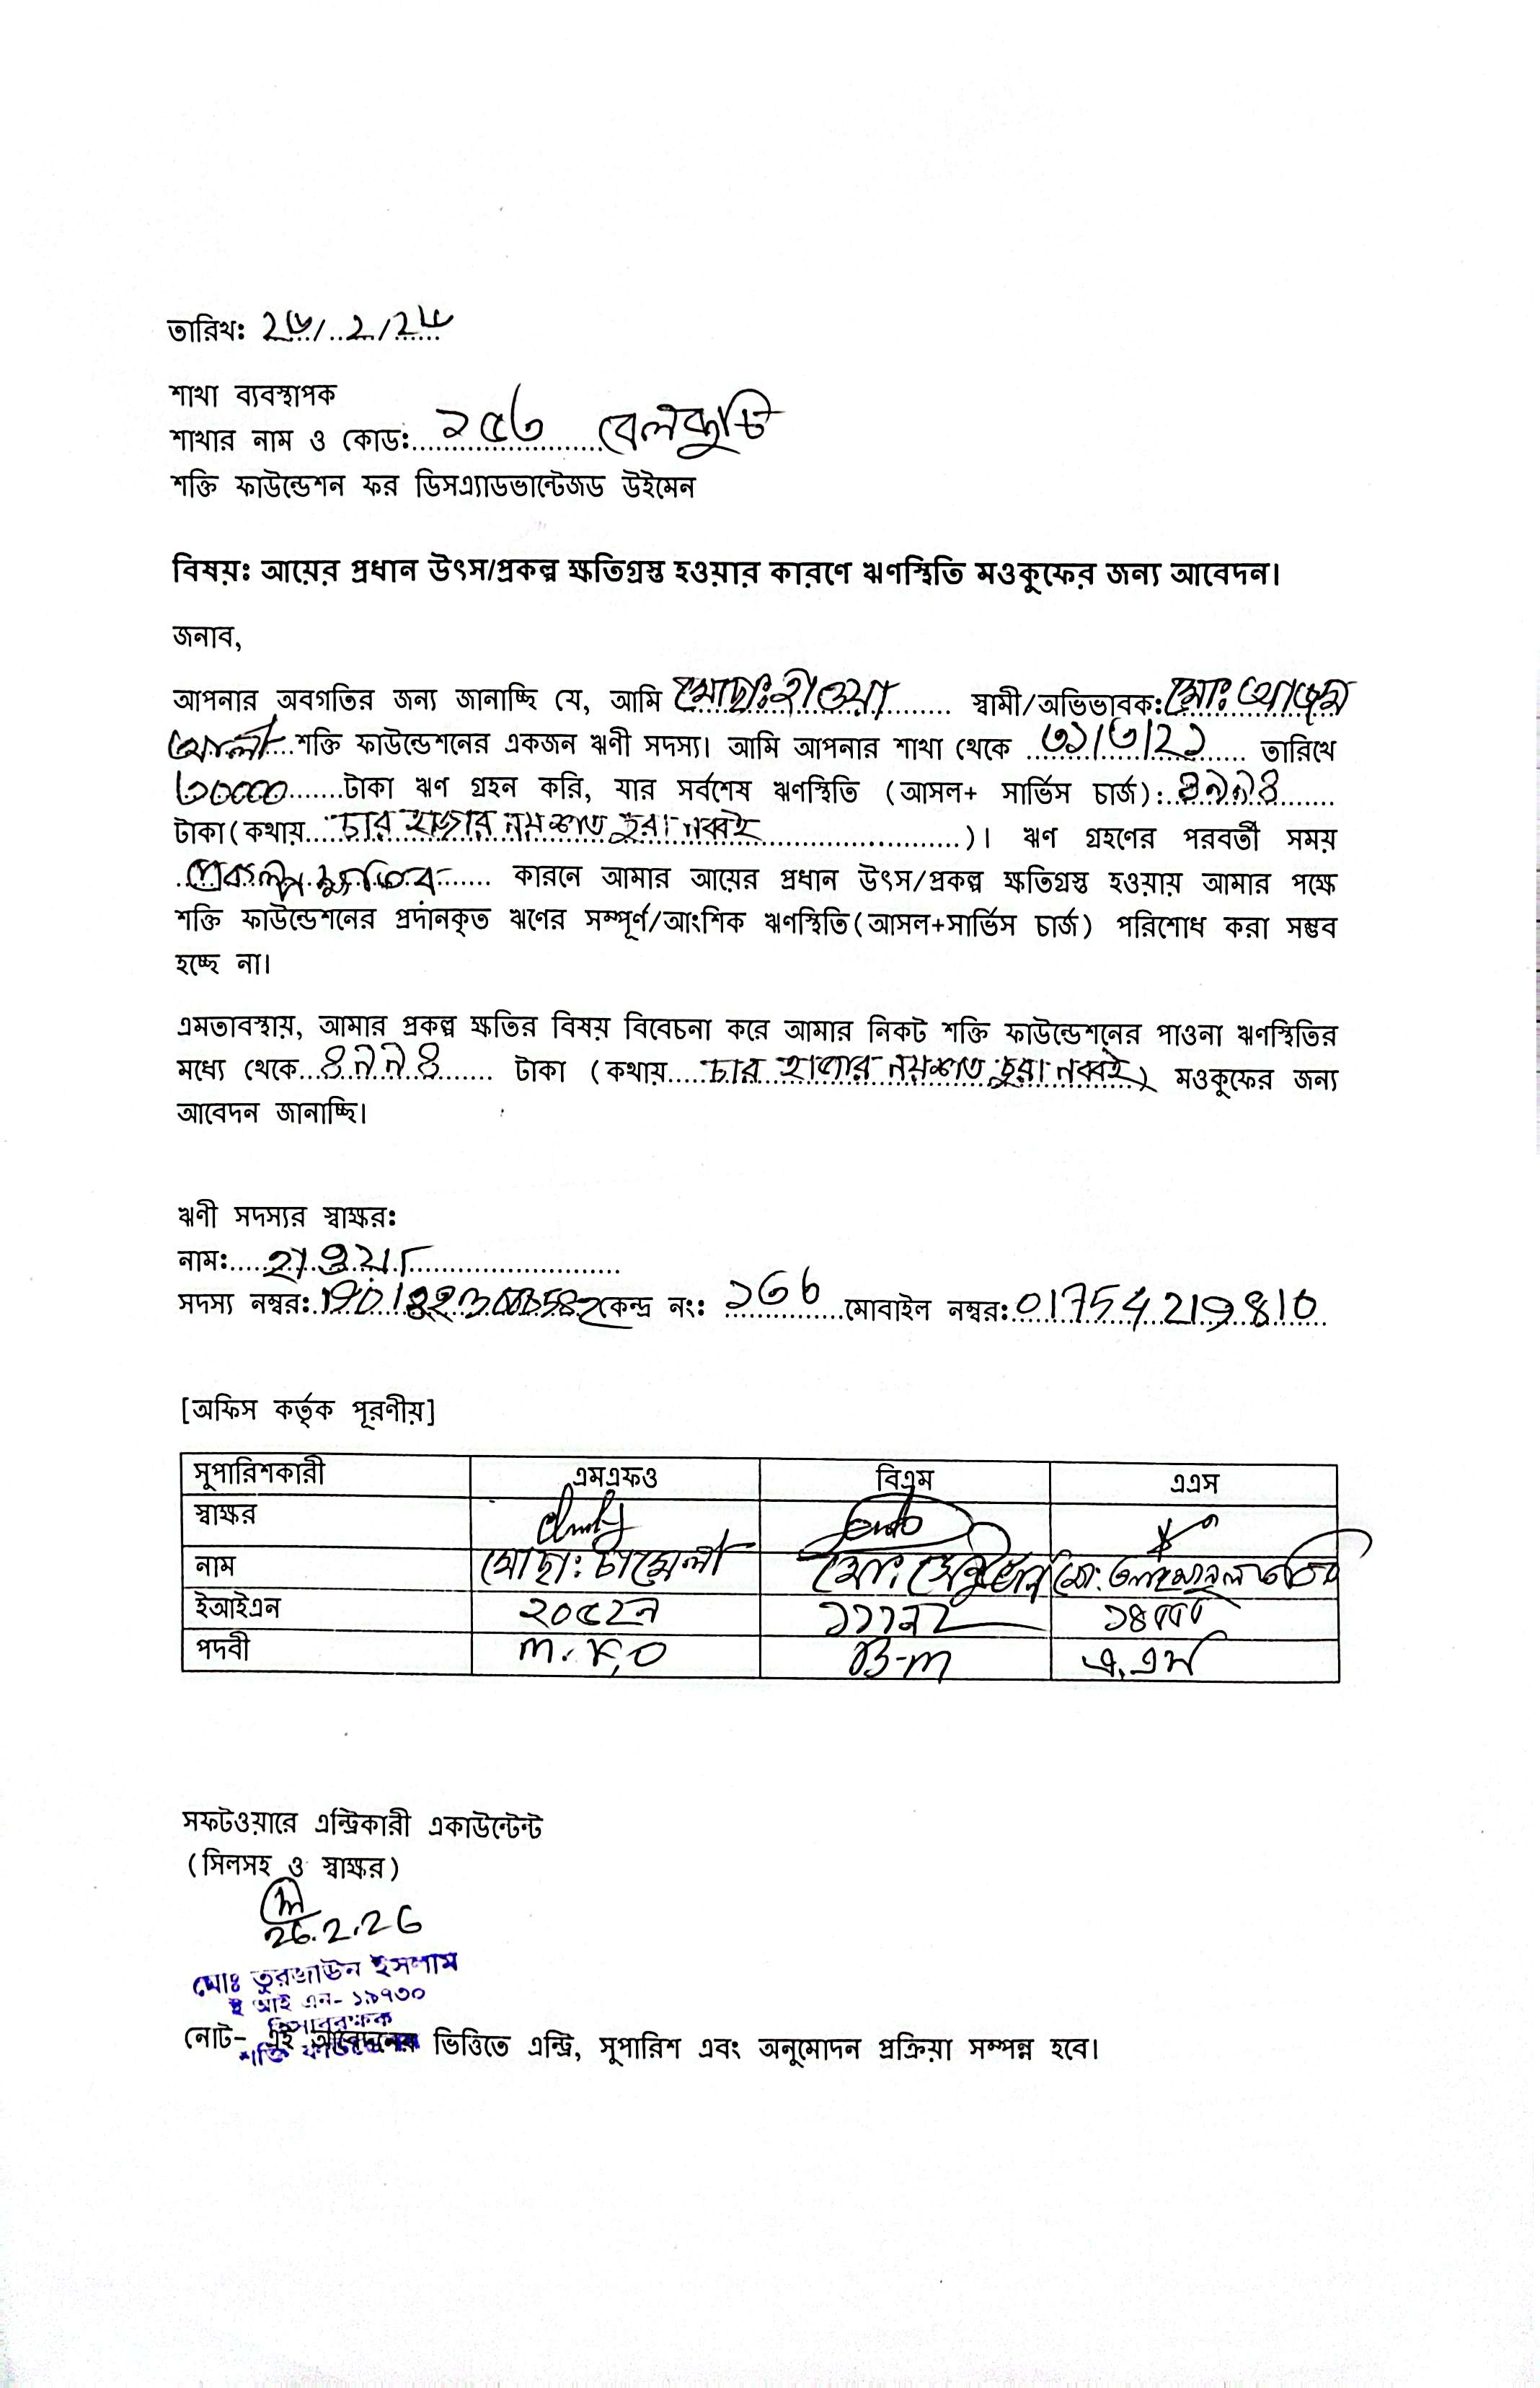 তারিখ: ২৬/২/২৬
শাখা ব্যবস্থাপক
শাখার নাম ও কোড: ১৫৩ বেলকুচি
শক্তি ফাউন্ডেশন ফর ডিসএ্যাডভান্টেজড উইমেন
বিষয়ঃ আয়ের প্রধান উৎস/প্রকল্প ক্ষতিগ্রস্ত হওয়ার কারণে ঋণস্থিতি মওকুফের জন্য আবেদন।
জনাব,
আপনার অবগতির জন্য জানাচ্ছি যে, আমি মোছাঃ হাওয়া স্বামী/অভিভাবক: মোঃ
আলী শক্তি ফাউন্ডেশনের একজন ঋণী সদস্য। আমি আপনার শাখা থেকে ৩১/৩/২১ তারিখে
৩০০০০ টাকা ঋণ গ্রহন করি, যার সর্বশেষ ঋণস্থিতি (আসল+ সার্ভিস চার্জ): ৪৯৯৪
টাকা(কথায় চার হাজার নয়শত চুরানব্বই)। ঋণ গ্রহণের পরবর্তী সময়
প্রকল্প ক্ষতির কারনে আমার আয়ের প্রধান উৎস/প্রকল্প ক্ষতিগ্রস্ত হওয়ায় আমার পক্ষে
শক্তি ফাউন্ডেশনের প্রদানকৃত ঋণের সম্পূর্ণ/আংশিক ঋণস্থিতি(আসল+সার্ভিস চার্জ) পরিশোধ করা সম্ভব
হচ্ছে না।
এমতাবস্থায়, আমার প্রকল্প ক্ষতির বিষয় বিবেচনা করে আমার নিকট শক্তি ফাউন্ডেশনের পাওনা ঋণস্থিতির
মধ্যে থেকে ৪৯৯৪ টাকা (কথায় চার হাজার নয়শত চুরানব্বই) মওকুফের জন্য
আবেদন জানাচ্ছি।
ঋণী সদস্যর স্বাক্ষর:
নাম: হাওয়া
সদস্য নম্বর: কেন্দ্র নং: মোবাইল নম্বর: 01754219810
[অফিস কর্তৃক পূরণীয়]
সুপারিশকারী এমএফও বিএম এএস
স্বাক্ষর
নাম মোছা: চামেলী মো:
ইআইএন ২০৫২৯ ১১৭৯২
পদবী M.F.O B-m এ.এস
সফটওয়ারে এন্ট্রিকারী একাউন্টেন্ট
(সিলসহ ও স্বাক্ষর)
26.2.26
মোঃ ইসলাম
ই আই এন- ১৯৭৩০
হিসাবরক্ষক
শক্তি ফাউন্ডেশন
নোট- এই আবেদনের ভিত্তিতে এন্ট্রি, সুপারিশ এবং অনুমোদন প্রক্রিয়া সম্পন্ন হবে।